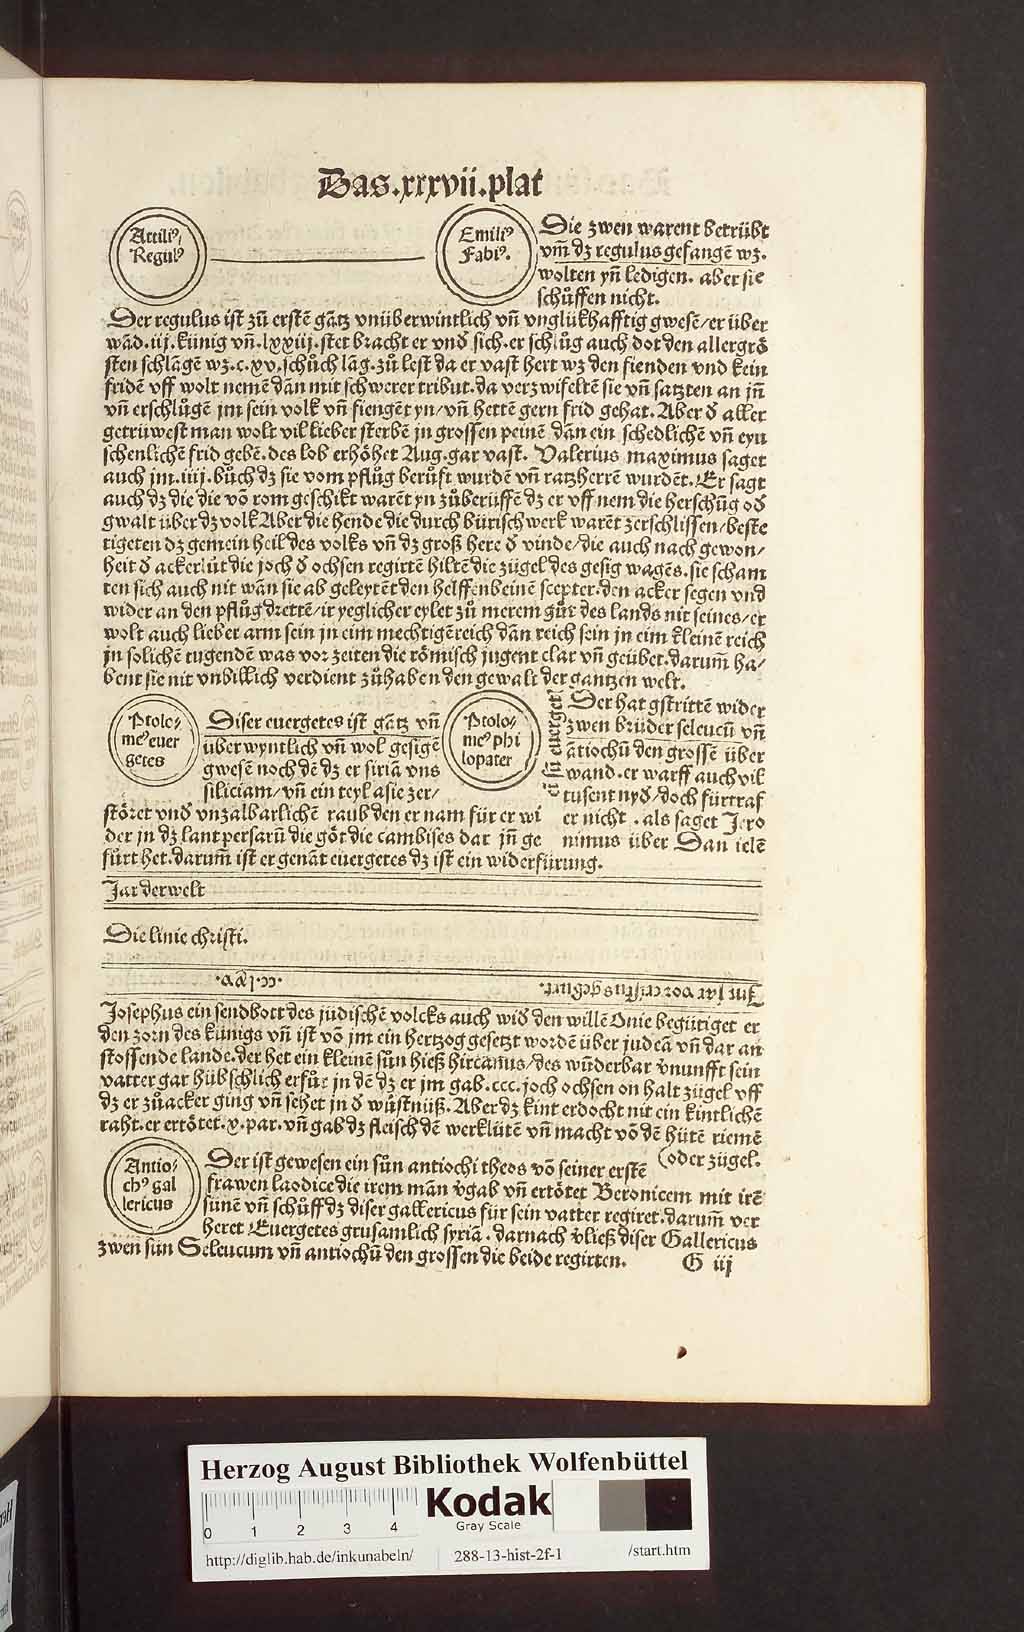 Das.xxxvii.plat
Attiliꝰ
Regulꝰ
Emiliꝰ
Fabiꝰ.
Die zwen warent betrübt
vm̄ dz regulus gefangē wz.
wolten yn̄ ledigen. aber sie
schůffen nicht.
Der regulus ist zů erstē gātz vnüberwintlich vn̄ vnglükhafftig gwesē/er über
wād.iij.künig vn̄.lxxiij.stet bracht er vnď sich.er schlůg auch dot den allergrö
sten schlāgē wz.c.xv.schůch lāg.zů lest da er vast hert wz den fienden vnd kein
fridē vff wolt nemē dān mit schwerer tribut.da verzwifeltē sie vn̄ satzten an jn̄
vn̄ erschlůgē jm sein volk vn̄ fiengēt yn/vn̄ hettē gern frid gehat.Aber ď aller
getrüwest man wolt vil lieber sterbē jn grossen peinē dān ein schedlichē vn̄ eyn
schenlichē frid gebē.des lob erhöhet Aug.gar vast. Valerius maximus saget
auch jm.iiij.bůch dz sie vom pflůg berůfft wurdē vn̄ ratzherrē wurdēt.Er sagt
auch dz die die vō rom geschikt warēt yn zůberüffē dz er vff nem die herschūg oď
gwalt über dz volk Aber die hende die durch bürisch werk warēt zerschlissen/beste
tigeten dz gemein heil des volks vn̄ dz groß here ď vinde/die auch nach gewon/
heit ď ackerlüt die joch ď ochsen regirtē hiltē die zügel des gesig wagēs.sie scham
ten sich auch nit wān sie ab geleytēt den helffenbeinē scepter.den acker segen vnd
wider an den pflůg drettē/ir yeglicher eylet zů merem gůt des lands nit seines/er
wolt auch lieber arm sein jn eim mechtigē reich dān reich sein jn eim kleinē reich
jn solichē tugendē was vor zeiten die römisch jugent clar vn̄ geübet.darum̄ ha/
bent sie nit vnbillich verdient zůhaben den gewalt der gantzen welt.
Ptole/
meꝰ euer
getes
Diser euergetes ist gātz vn̄
überwyntlich vn̄ wol gesigē
gwesē noch dē dz er siriā vns
siliciam/vn̄ ein teyl asie zer/
störet vnď vnzalbarlichē raub den er nam für er wi
der jn dz lant persarū die göt die cambises dar jn̄ ge
fürt het.darum̄ ist er genāt euergetes dz ist ein widerfürung.
Ptolo/
meꝰ phi
lopater
Der hat gstrittē wider
zwen brüder seleucū vn̄
ātiochū den grossē über
wand.er warff auch vil
tusent nyď/doch fürtraf
er nicht.als saget Jero
nimus über Dan ielē
Jar der welt
Die linie christi.
Jm jar vor cristus geburt.
.cc.lxv.
Josephus ein sendbott des jüdischē volcks auch wiď den willē Onie begütiget er
den zorn des künigs vn̄ ist vō jm ein hertzog gesetzt wordē über judeā vn̄ dar an
stossende lande.der het ein kleinē sůn hieß hircanus/des wūderbar v̄nunfft sein
vatter gar hübschlich erfůr jn dē dz er jm gab.ccc.joch ochsen on halt zügel vff
dz er zů acker ging vn̄ sehet jn ď wůstnüß.Aber dz kint erdocht nit ein kintlichē
raht.er ertötet.x.par.vn̄ gab dz fleisch dē werklütē vn̄ macht vō dē hütē riemē
(oder zügel.
Antio/
chꝰ gal
lericus
Der ist gewesen ein sůn antiochi theos vō seiner erstē
frawen laodice die irem mān v̄gab vn̄ ertötet Beronicem mit irē
sünē vn̄ schůff dz diser gallericus für sein vatter regiret.darum̄ ver
heret Euergetes grusamlich syriā.darnach v̄ließ diser Gallericus
zwen sün Seleucum vn̄ antiochū den grossen die beide regirten.
G iij
Herzog August Bibliothek Wolfenbüttel
0 1 2 3 4
Kodak
Gray Scale
http://diglib.hab.de/inkunabeln/
288-13-hist-2f-1
/start.htm